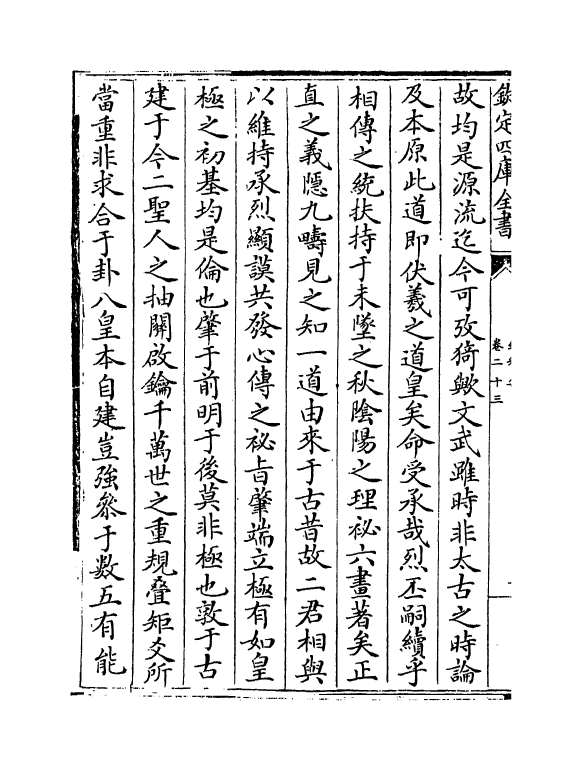 欽定四庫全書
卷二十三
故均是源流迄今可攷猗歟文武雖時非太古之時論
及本原此道即伏羲之道皇矣命受承哉烈丕嗣續乎
相傳之統扶持于未墜之秋陰陽之理祕六畫著矣正
直之義隱九疇見之知一道由來于古昔故二君相與
以維持承烈顯謨共發心傳之祕旨肇端立極有如皇
極之初基均是倫也肇于前明于後莫非極也敦于古
建于今二聖人之抽關啟鑰千萬世之重規疊矩爻所
當重非求合于卦八皇本自建豈強參于數五有能